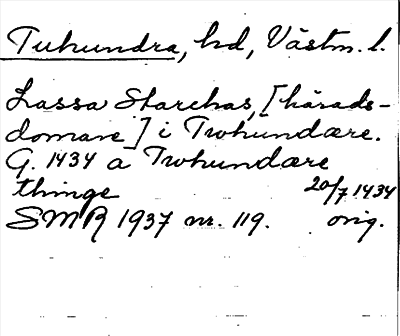 Tuhundra, hd, Västm. l.
Lassa Starchas, [härads-
domare] i Twhundære.
G. 1434 a Twhundære
thinge 20/7 1434
SMR 1937 nr. 119. orig.